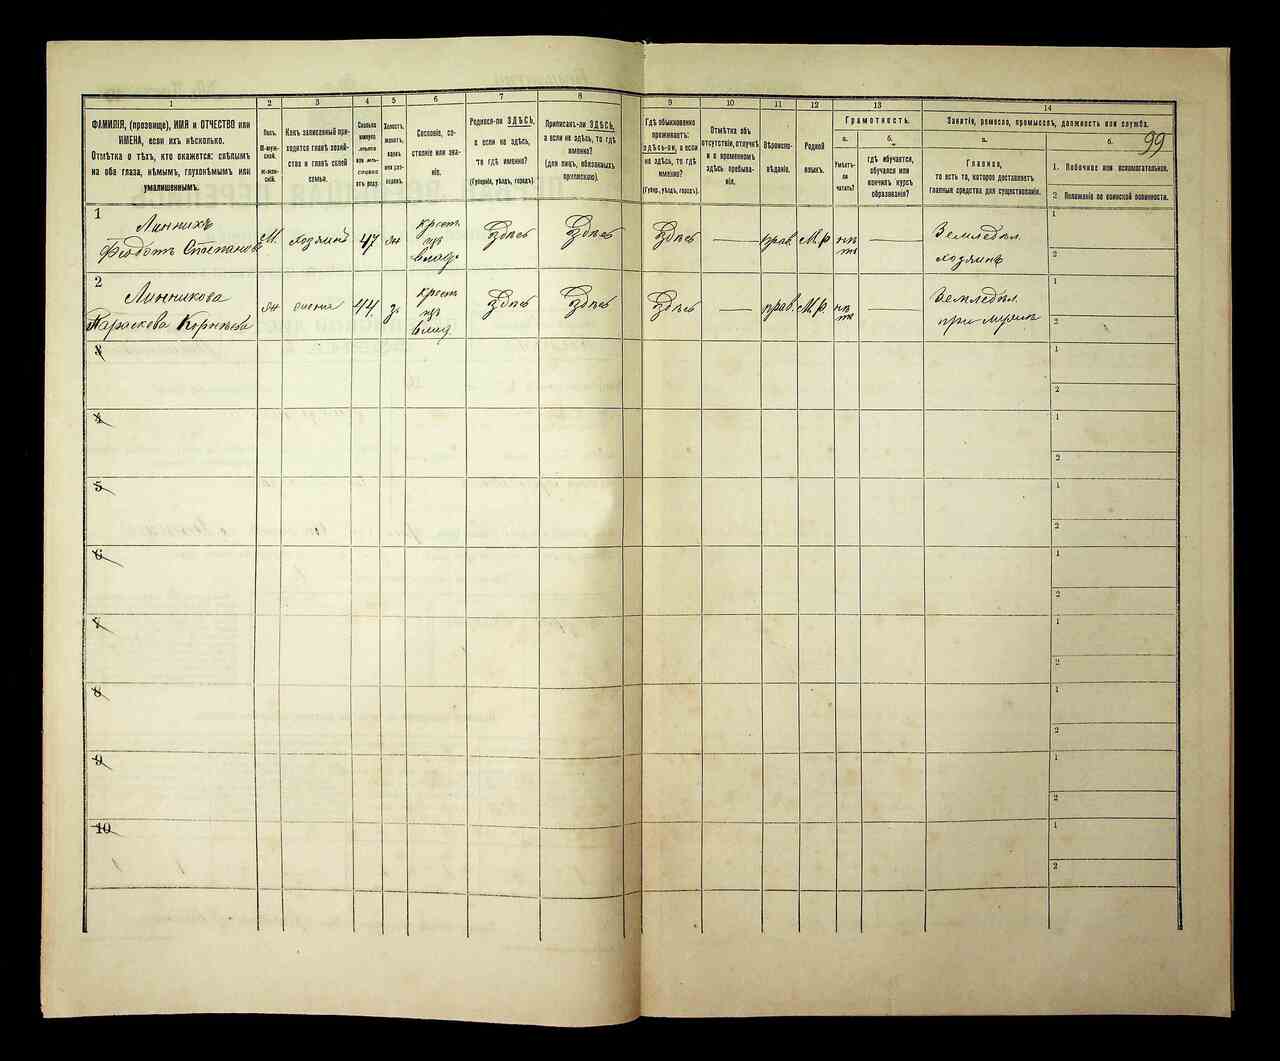 99
1 2 3 4 5 6 7 8 9 10 11 12 13 14
ФАМИЛІЯ, (прозвище), ИМЯ и ОТЧЕСТВО или
ИМЕНА, если ихъ нѣсколько.
Отмѣтка о тѣхъ, кто окажется: слѣпымъ
на оба глаза, нѣмымъ, глухонѣмымъ или
умалишеннымъ.
Полъ.
М-муж-
ской.
Ж-жен-
скій.
Какъ записанный при-
ходится главѣ хозяй-
ства и главѣ своей
семьи.
Сколько
минуло
лѣтъ
или мѣс-
яцевъ
отъ роду.
Холостъ,
женатъ,
вдовъ
или раз-
веденъ.
Сословіе, со-
стояніе или зва-
ніе.
Родился-ли ЗДѢСЬ,
а если не здѣсь,
то гдѣ именно?
(Губернія, уѣздъ, городъ).
Приписанъ-ли ЗДѢСЬ,
а если не здѣсь, то гдѣ
именно?
(для лицъ, обязанныхъ
припискою).
Гдѣ обыкновенно
проживаетъ:
здѣсь-ли, а если
не здѣсь, то гдѣ
именно?
(Губер, уѣздъ, городъ).
Отмѣтка объ
отсутствіи, отлучкѣ
и о временномъ
здѣсь пребыва-
ніи.
Вѣроиспо-
вѣданіе.
Родной
языкъ.
Грамотность.
а.
Умѣетъ-
ли чи-
тать?
б.
гдѣ обучается,
обучался или
кончилъ курсъ
образованія?
Занятіе, ремесло, промыселъ, должность или служба.
а.
Главное,
то есть то, которое доставляетъ
главныя средства для существованія.
б.
1. Побочное или вспомогательное.
2 Положеніе по воинской повинности.
1
Линникъ
Федотъ Степановъ
М. хозяинъ 47 ж
крест.
из
влад.
Здѣсь Здѣсь Здѣсь — прав. М.р. нѣ
тъ
—
Земледѣл.
хозяинъ
1
2
2
Линникова
Параскева Корнѣева
ж жена 44 з
крест.
из
влад.
Здѣсь Здѣсь Здѣсь — прав. М.р. нѣ
тъ
—
Земледѣл.
при мужѣ
1
2
3
1
2
4
1
2
5
1
2
6
1
2
7
1
2
8
1
2
9
1
2
10
1
2